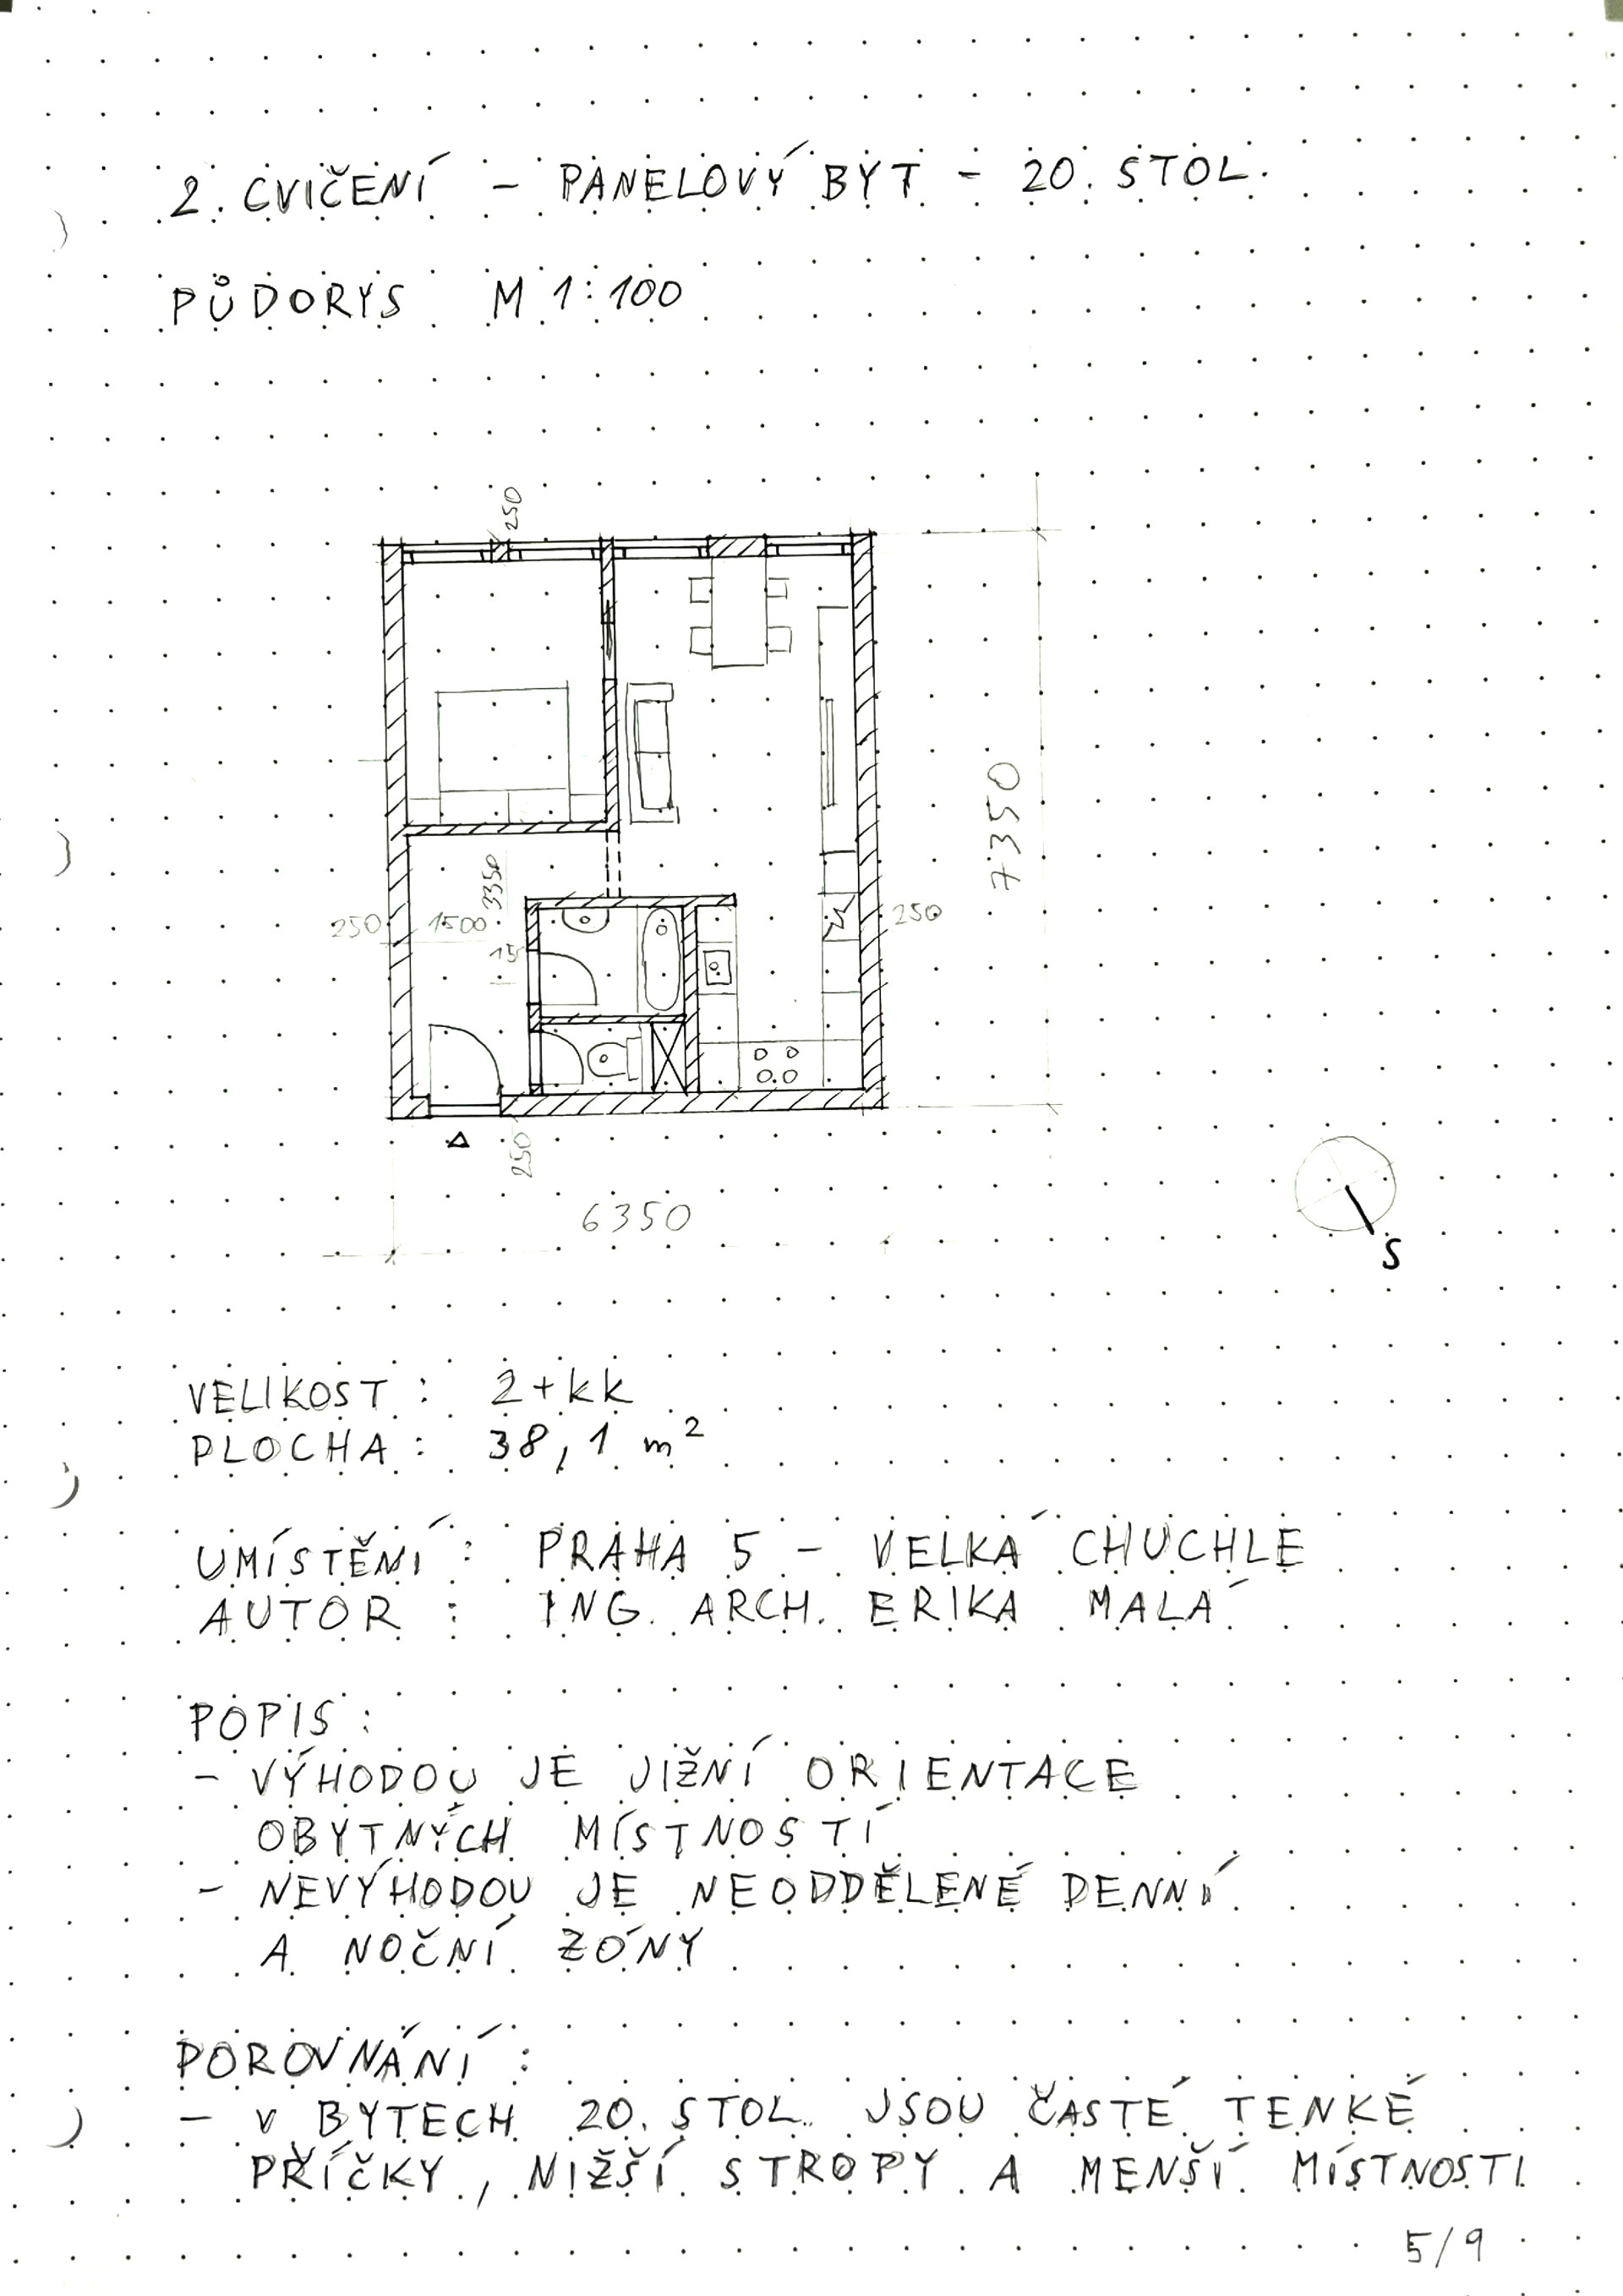 2. CVIČENÍ - PANELOVÝ BYT - 20. STOL.
PŮDORYS M 1:100
250
7350
3350
250
1500
250
250
6350
S
VELIKOST : 2+kk
PLOCHA : 38,1 m²
UMÍSTĚNÍ : PRAHA 5 - VELKÁ CHUCHLE
AUTOR : ING. ARCH. ERIKA MALÁ
POPIS :
- VÝHODOU JE JIŽNÍ ORIENTACE
OBYTNÝCH MÍSTNOSTÍ
- NEVÝHODOU JE NEODDĚLENÉ DENNÍ
A NOČNÍ ZÓNY
POROVNÁNÍ :
- V BYTECH 20. STOL. JSOU ČASTÉ TENKÉ
PŘÍČKY, NIŽŠÍ STROPY A MENŠÍ MÍSTNOSTI
5/9